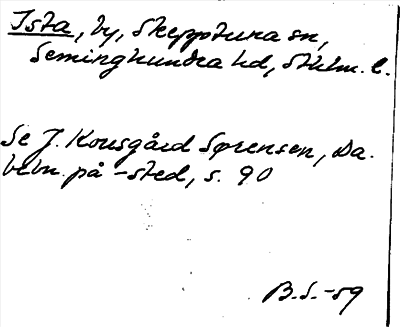 Ista, by, Skepptuna sn,
Seminghundra hd, Sthlm. l.
Se J. Kousgård Sørensen, Da.
bebn. på -sted, s. 90
B.S.-59